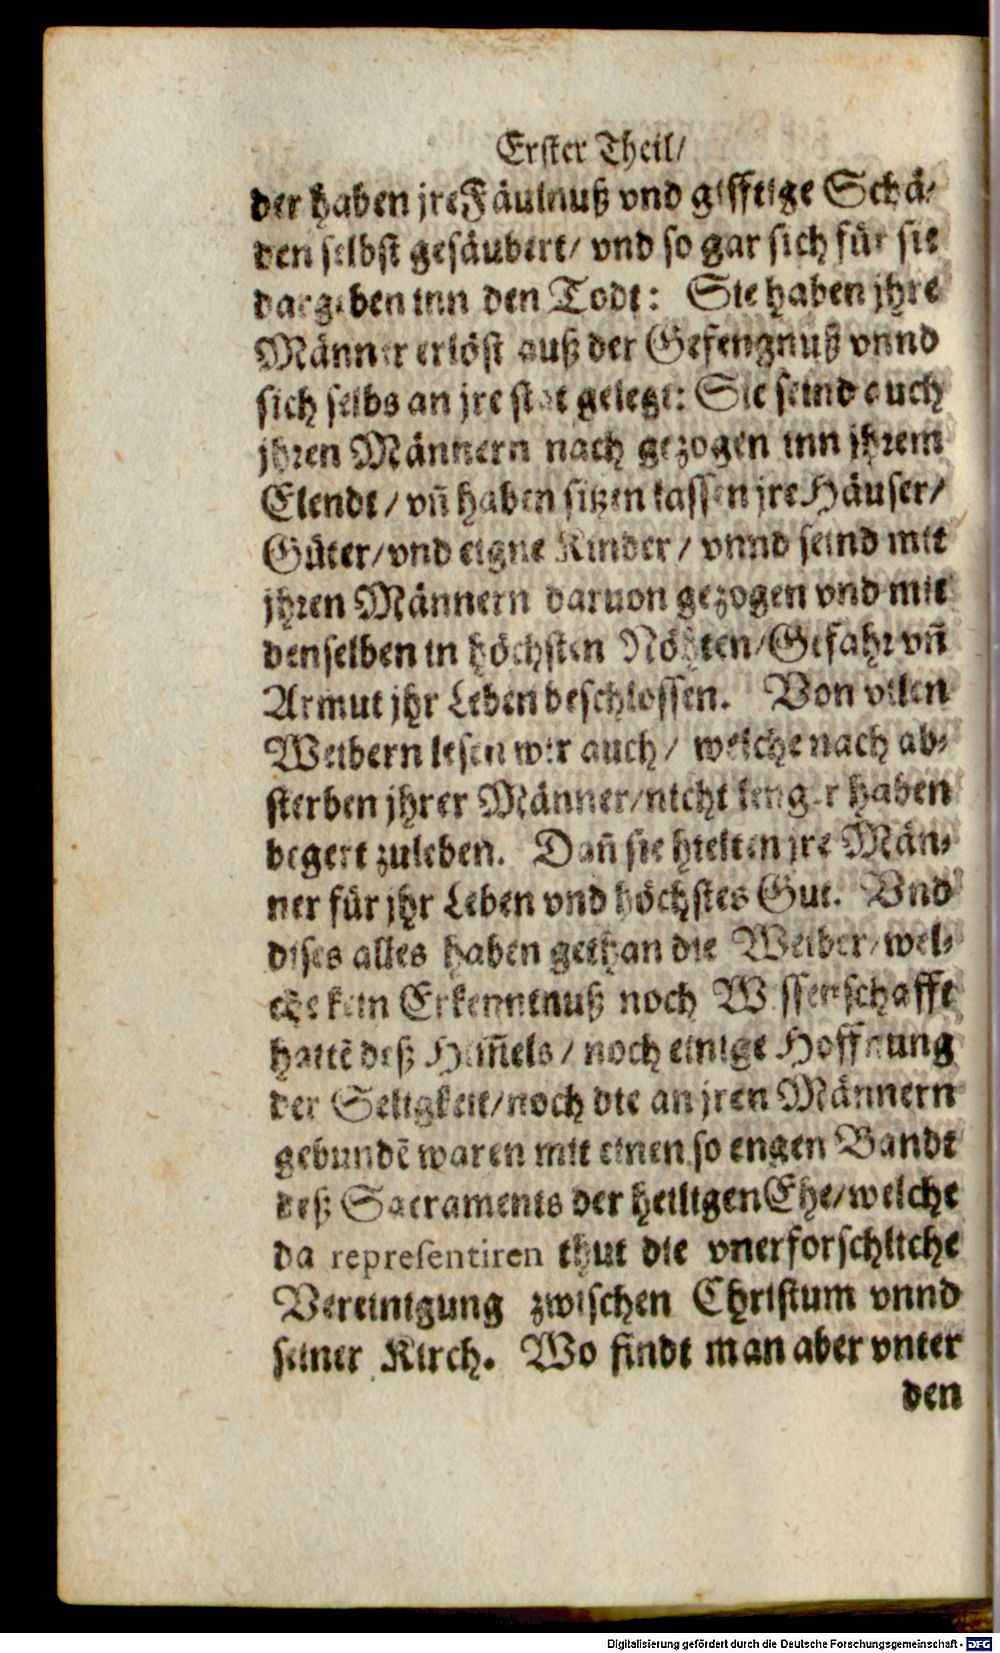 Erster Theil/
der haben jre Fäulnuß vnd gifftige Schä-
den selbst gesäubert/ vnd so gar sich für sie
dargeben inn den Todt: Sie haben jhre
Männer erlöst auß der Gefengnuß vnnd
sich selbs an jre stat gelegt: Sie seind auch
jhren Männern nach gezogen inn jhrem
Elendt/ vñ haben sitzen lassen jre Häuser/
Güter/ vnd eigne Kinder/ vnnd seind mit
jhren Männern daruon gezogen vnd mit
denselben in höchsten Nöhten/ Gefahr vñ
Armut jhr Leben beschlossen. Von vilen
Weibern lesen wir auch/ welche nach ab-
sterben jhrer Männer/ nicht lenger haben
begert zuleben. Dañ sie hielten jre Män-
ner für jhr Leben vnd höchstes Gut. Vnd
dises alles haben gethan die Weiber/ wel-
che kein Erkenntnuß noch Wissenschafft
hattē deß Him̃els/ noch einige Hoffnung
der Seligkeit/ noch die an jren Männern
gebundē waren mit einen so engen Bandt
deß Sacraments der heiligen Ehe/ welche
da repreſentiren thut die vnerforschliche
Vereinigung zwischen Christum vnnd
seiner Kirch. Wo findt man aber vnter
den
Digitalisierung gefördert durch die Deutsche Forschungsgemeinschaft - DFG